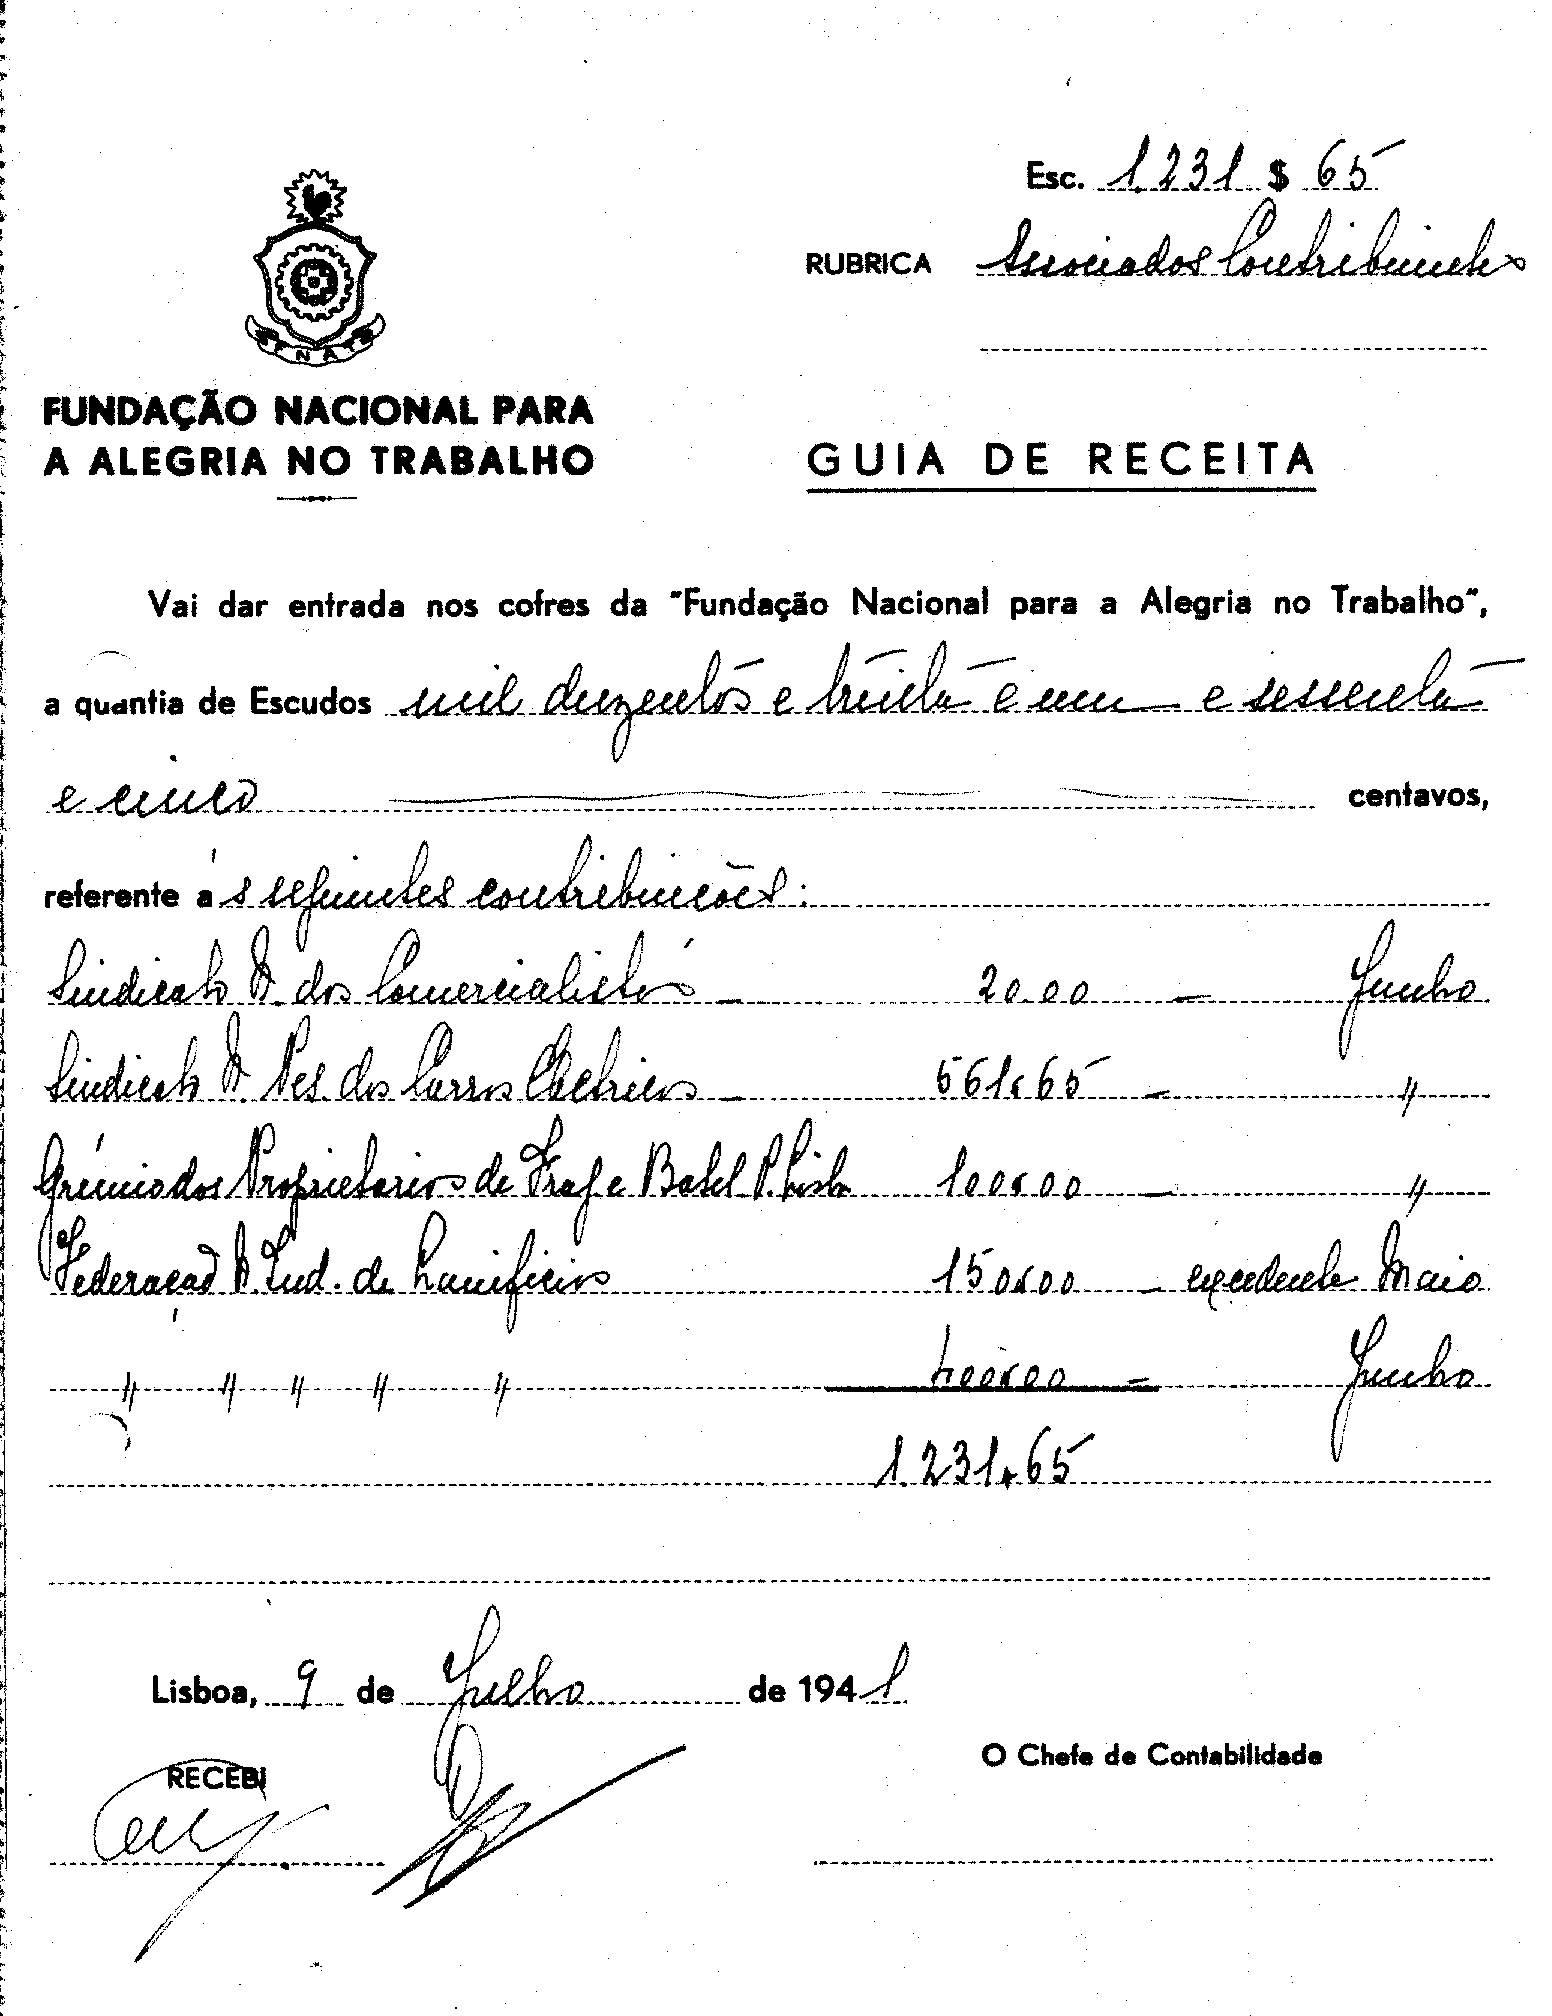 Esc. 1.231 $ 65
RUBRICA Associados Contribuintes
FNAT
FUNDAÇÃO NACIONAL PARA
A ALEGRIA NO TRABALHO
GUIA DE RECEITA
Vai dar entrada nos cofres da "Fundação Nacional para a Alegria no Trabalho",
a quantia de Escudos mil duzentos e trinta e um e sessenta
e cinco centavos,
referente às seguintes contribuições:
Sindicato N. dos Comercialistas — 20.00 — Junho
Sindicato N. Pes. dos Carros Electricos — 561$65 — "
Grémio dos Proprietarios de Frag e Batel P. Lisb 100$00 — "
Federação N. Ind. de Lanificios 150$00 — excedente Maio
" " " " " 400$00 — Junho
1.231$65
Lisboa, 9 de Julho de 1941
RECEBI
O Chefe de Contabilidade